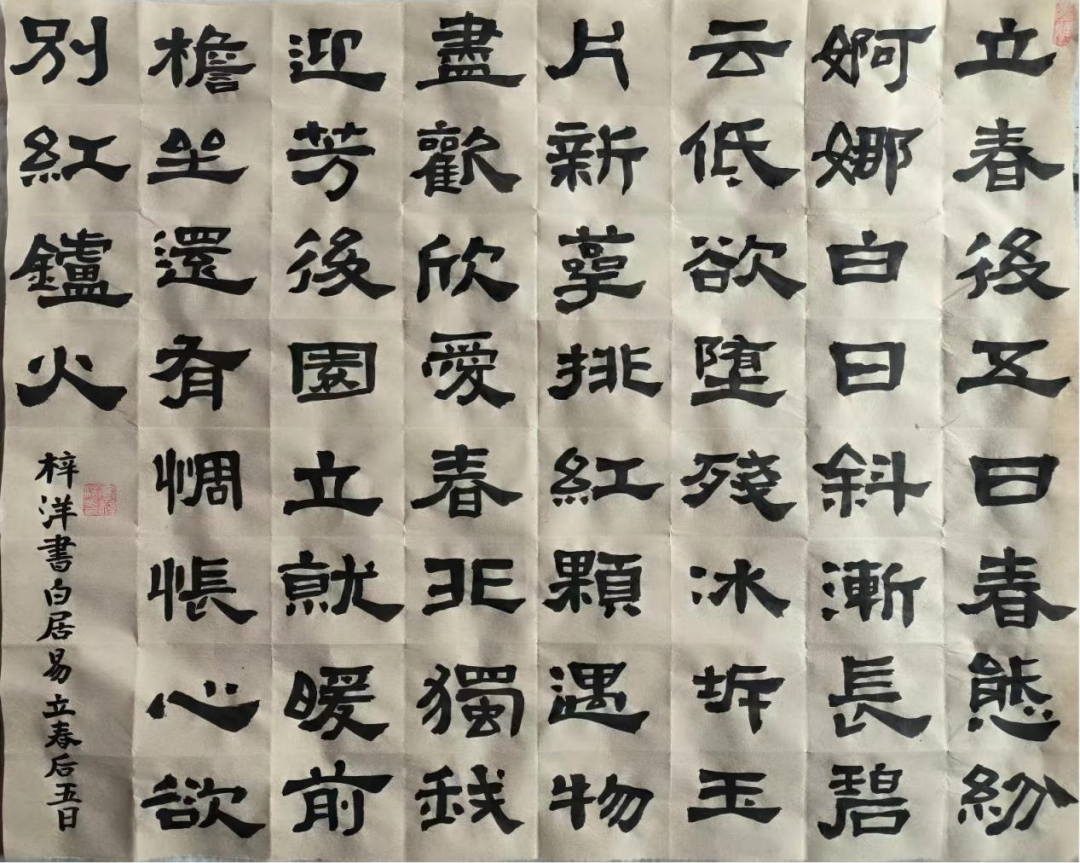 立春後五日春態紛
婀娜白日斜漸長碧
云低欲堕殘冰坼玉
片新萼排紅顆遇物
盡歡欣愛春非獨我
迎芳後園立就暖前
檐坐還有惆悵心欲
別紅鑪火
梓洋書白居易立春后五日